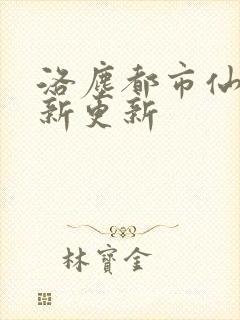 洛塵都市仙
新更新
林寶金